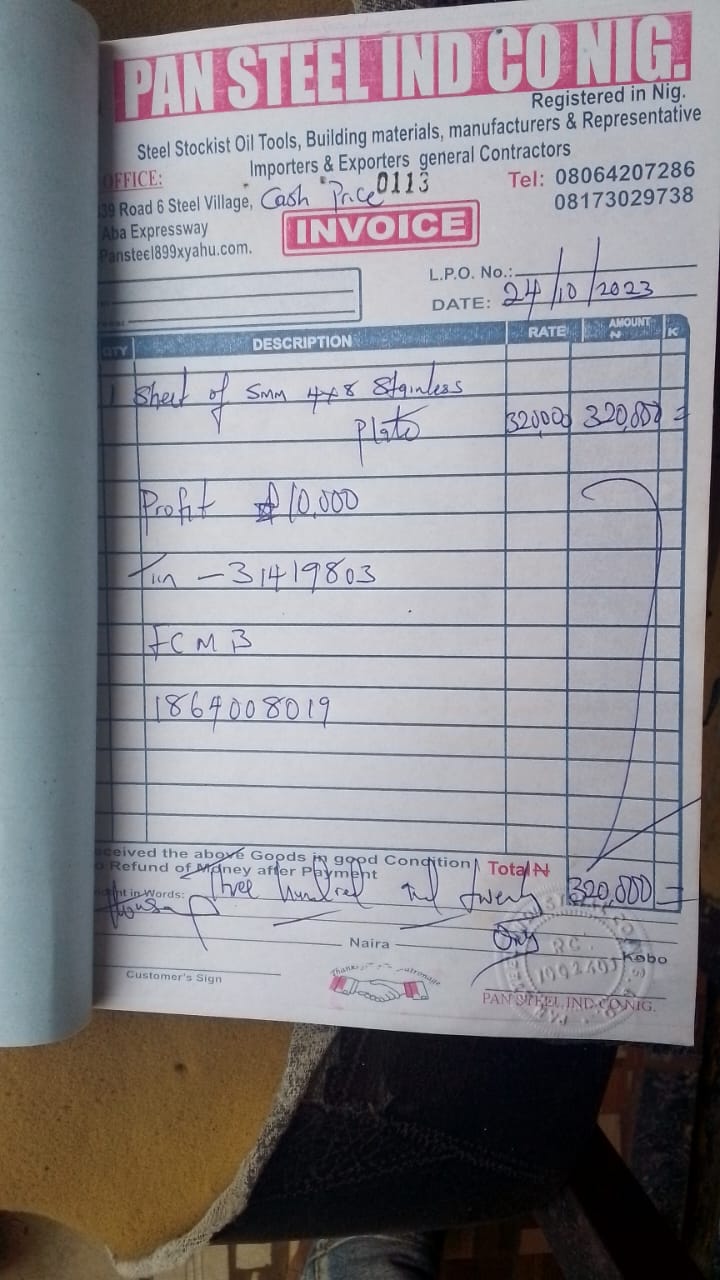 PAN STEEL IND CO NIG.
Registered in Nig.
Steel Stockist Oil Tools, Building materials, manufacturers & Representative
Importers & Exporters general Contractors
OFFICE:
39 Road 6 Steel Village,
Aba Expressway
Pansteel899xyahu.com.
Cash Price 0113
Tel: 08064207286
08173029738
INVOICE
L.P.O. No.:
DATE: 24/10/2023
QTY DESCRIPTION RATE AMOUNT ₦ K
1 Sheet of 5mm 4x8 Stainless
Plate 320,000 320,000 =
Profit ₦10,000
Tin - 31419803
FCMB
1864008019
ceived the above Goods in good Condition
o Refund of Money after Payment
Total ₦ 320,000 =
in Words: Three hundred and twenty
thousand
Naira Only Kobo
Customer's Sign
Thank patronage
PAN STEEL IND CO NIG.